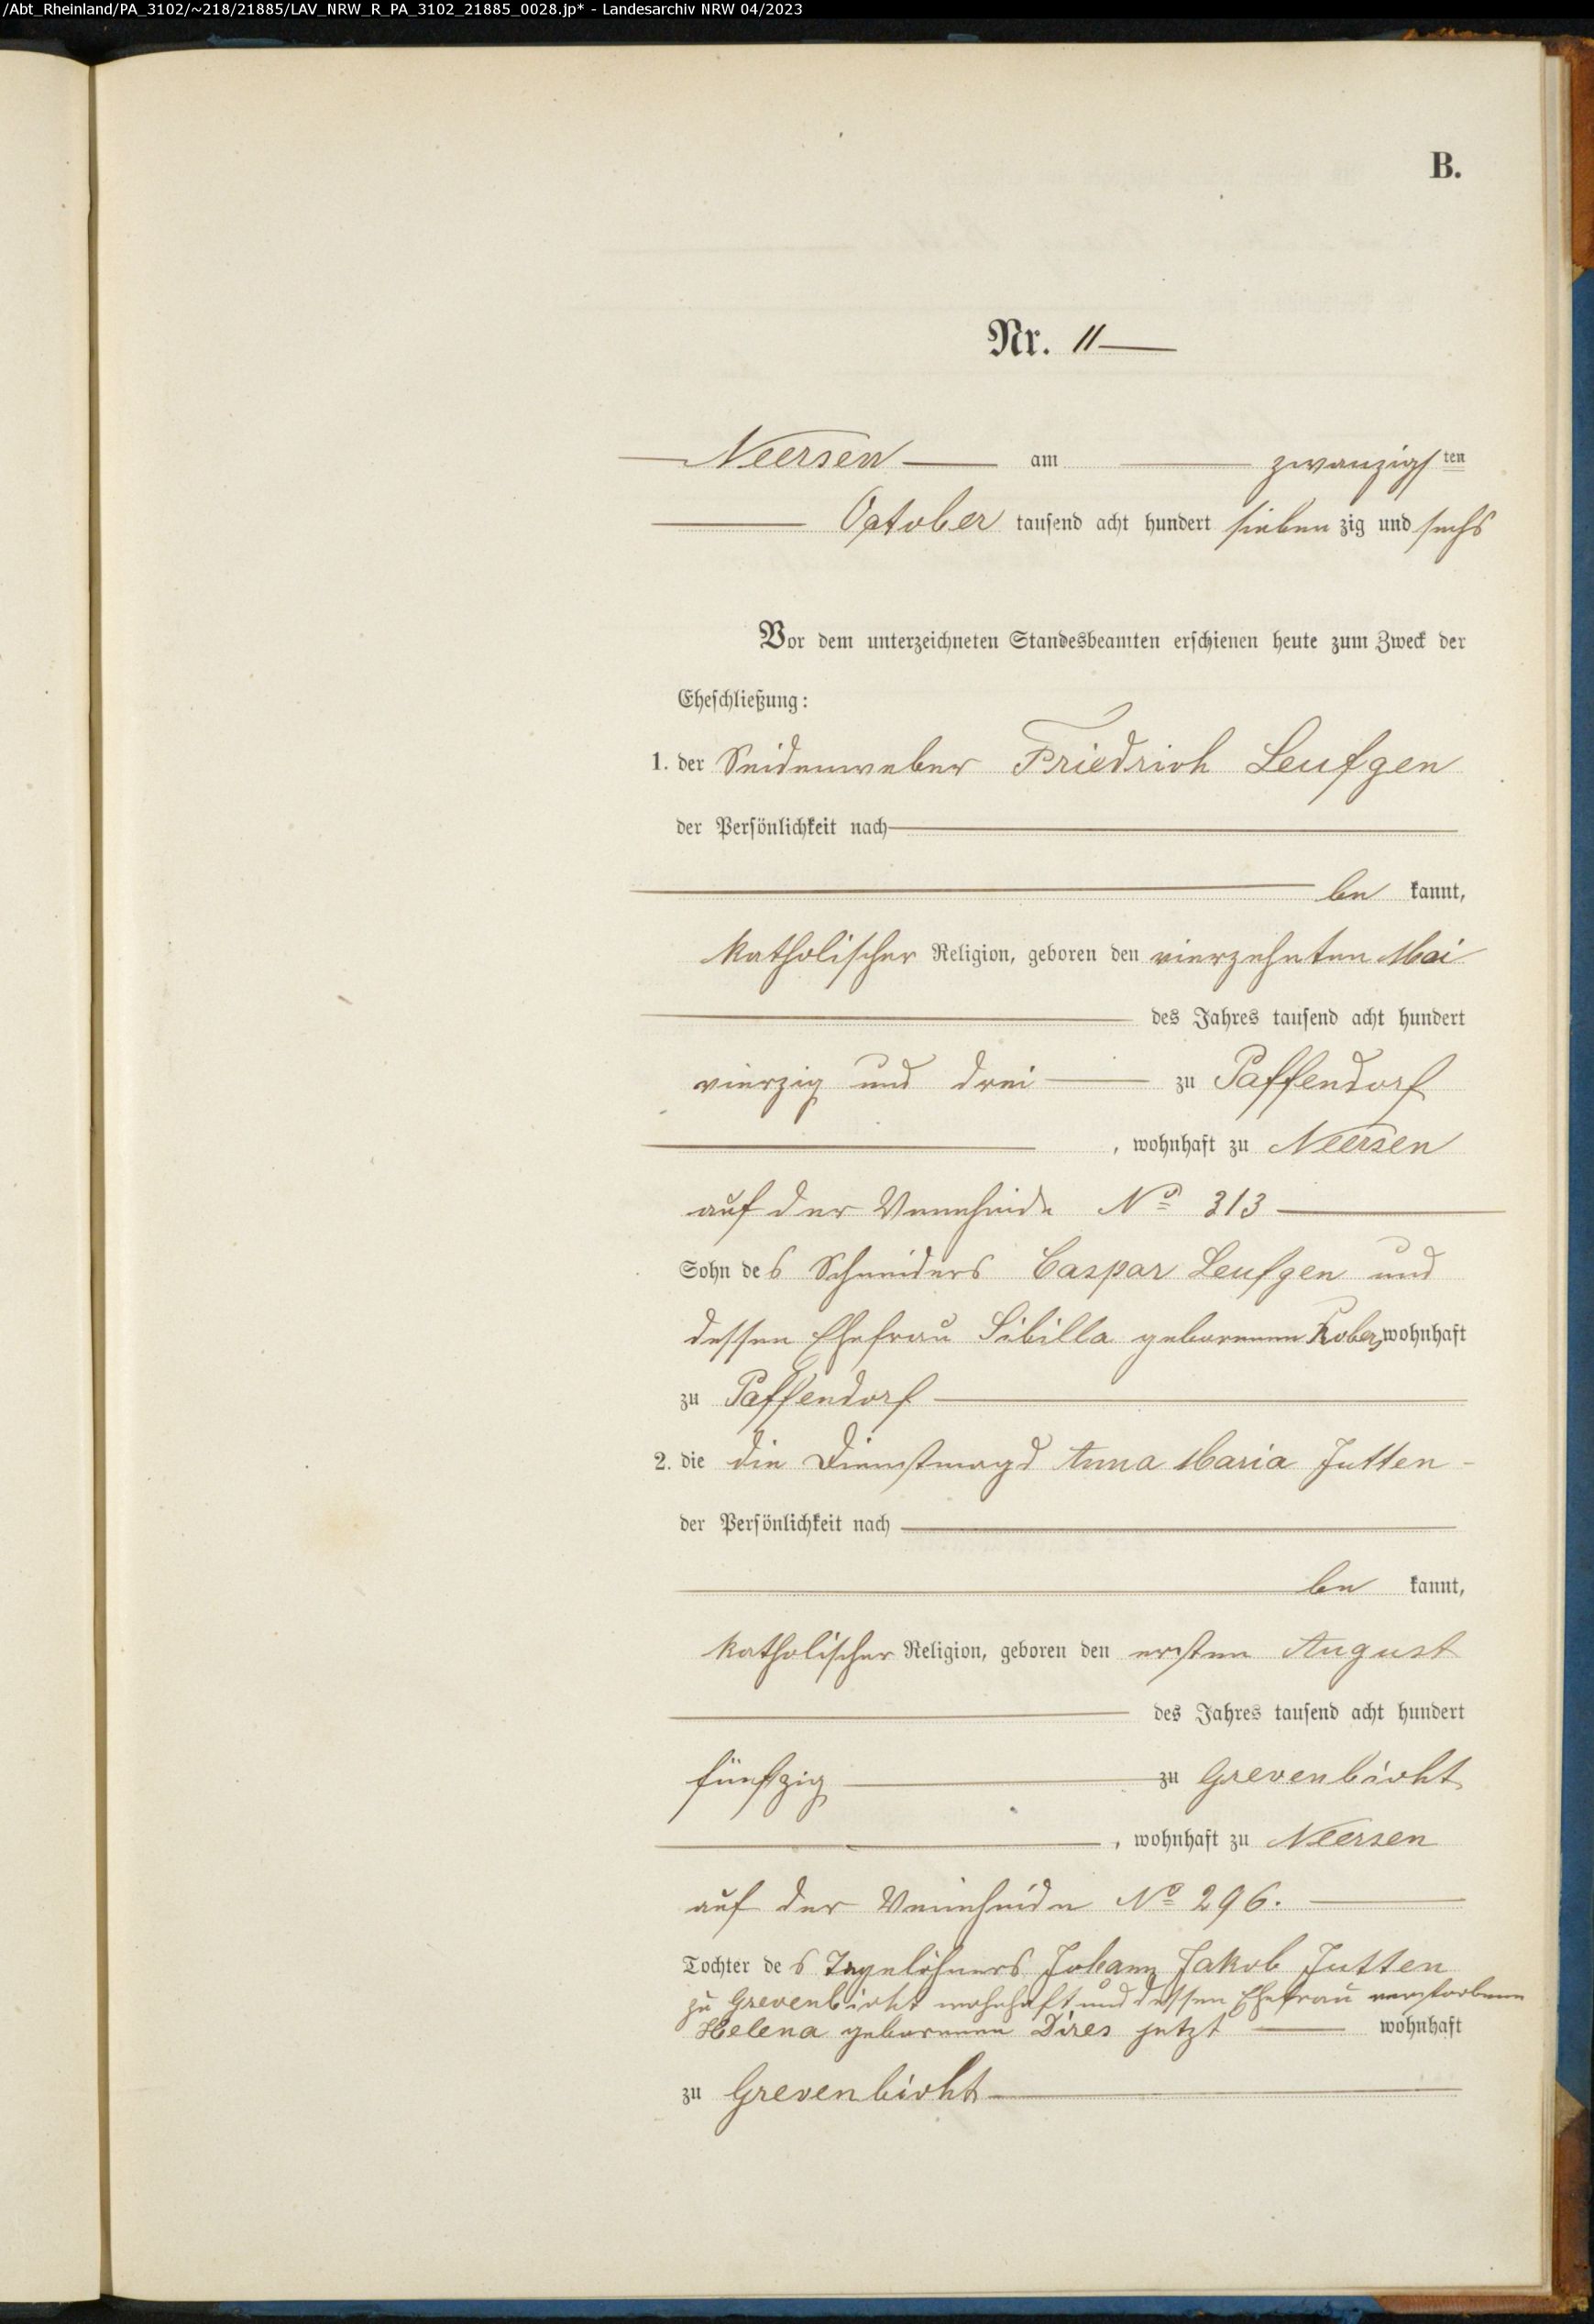 /Abt_Rheinland/PA_3102/~218/21885/LAV_NRW_R_PA_3102_21885_0028.jp* - Landesarchiv NRW 04/2023
B.
Nr. 11
Neersen am zwanzigsten
October tausend acht hundert siebenzig und sechs
Vor dem unterzeichneten Standesbeamten erschienen heute zum Zweck der
Eheschließung:
1. der Seidenweber Friedrich Leufgen
der Persönlichkeit nach
be kannt,
katholischer Religion, geboren den vierzehnten Mai
des Jahres tausend acht hundert
vierzig und drei zu Paffendorf
, wohnhaft zu Neersen
auf der Vennheide No 313
Sohn des Schneiders Caspar Leufgen und
dessen Ehefrau Sibilla geborenen wohnhaft
zu Paffendorf
2. die die Dienstmagd Anna Maria Jutten
der Persönlichkeit nach
be kannt,
katholischer Religion, geboren den ersten August
des Jahres tausend acht hundert
fünfzig zu Grevenbicht
, wohnhaft zu Neersen
auf der Vennheide No 296.
Tochter des Tagelöhners Johann Jakob Jutten
zu Grevenbicht wohnhaft und dessen Ehefrau verstorbene
Helena geborenen Dires jetzt wohnhaft
zu Grevenbicht